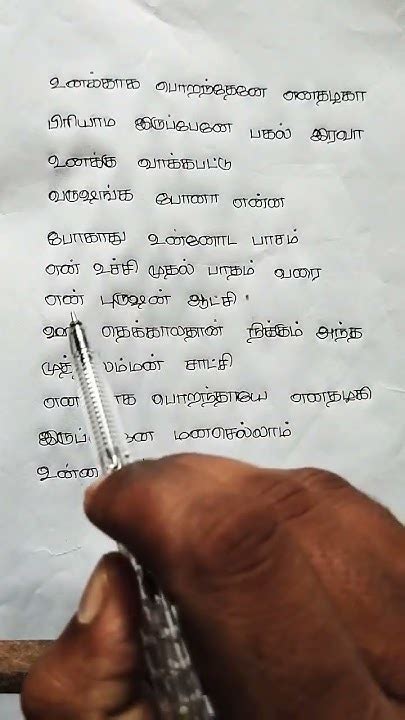 உனக்காக பொறந்தேனே எனதழகா
பிரியாம இருப்பேனே பகல் இரவா
உனக்கு வாக்கபட்டு
வருஷங்க போனா என்ன
போகாது உன்னோட பாசம்
என் உச்சி முதல் பாதம் வரை
என் புருஷன் ஆட்சி
தெக்காலதான் நிக்கும் அந்த
சாட்சி
பொறந்தாயே எனதழகி
மனசெல்லாம்